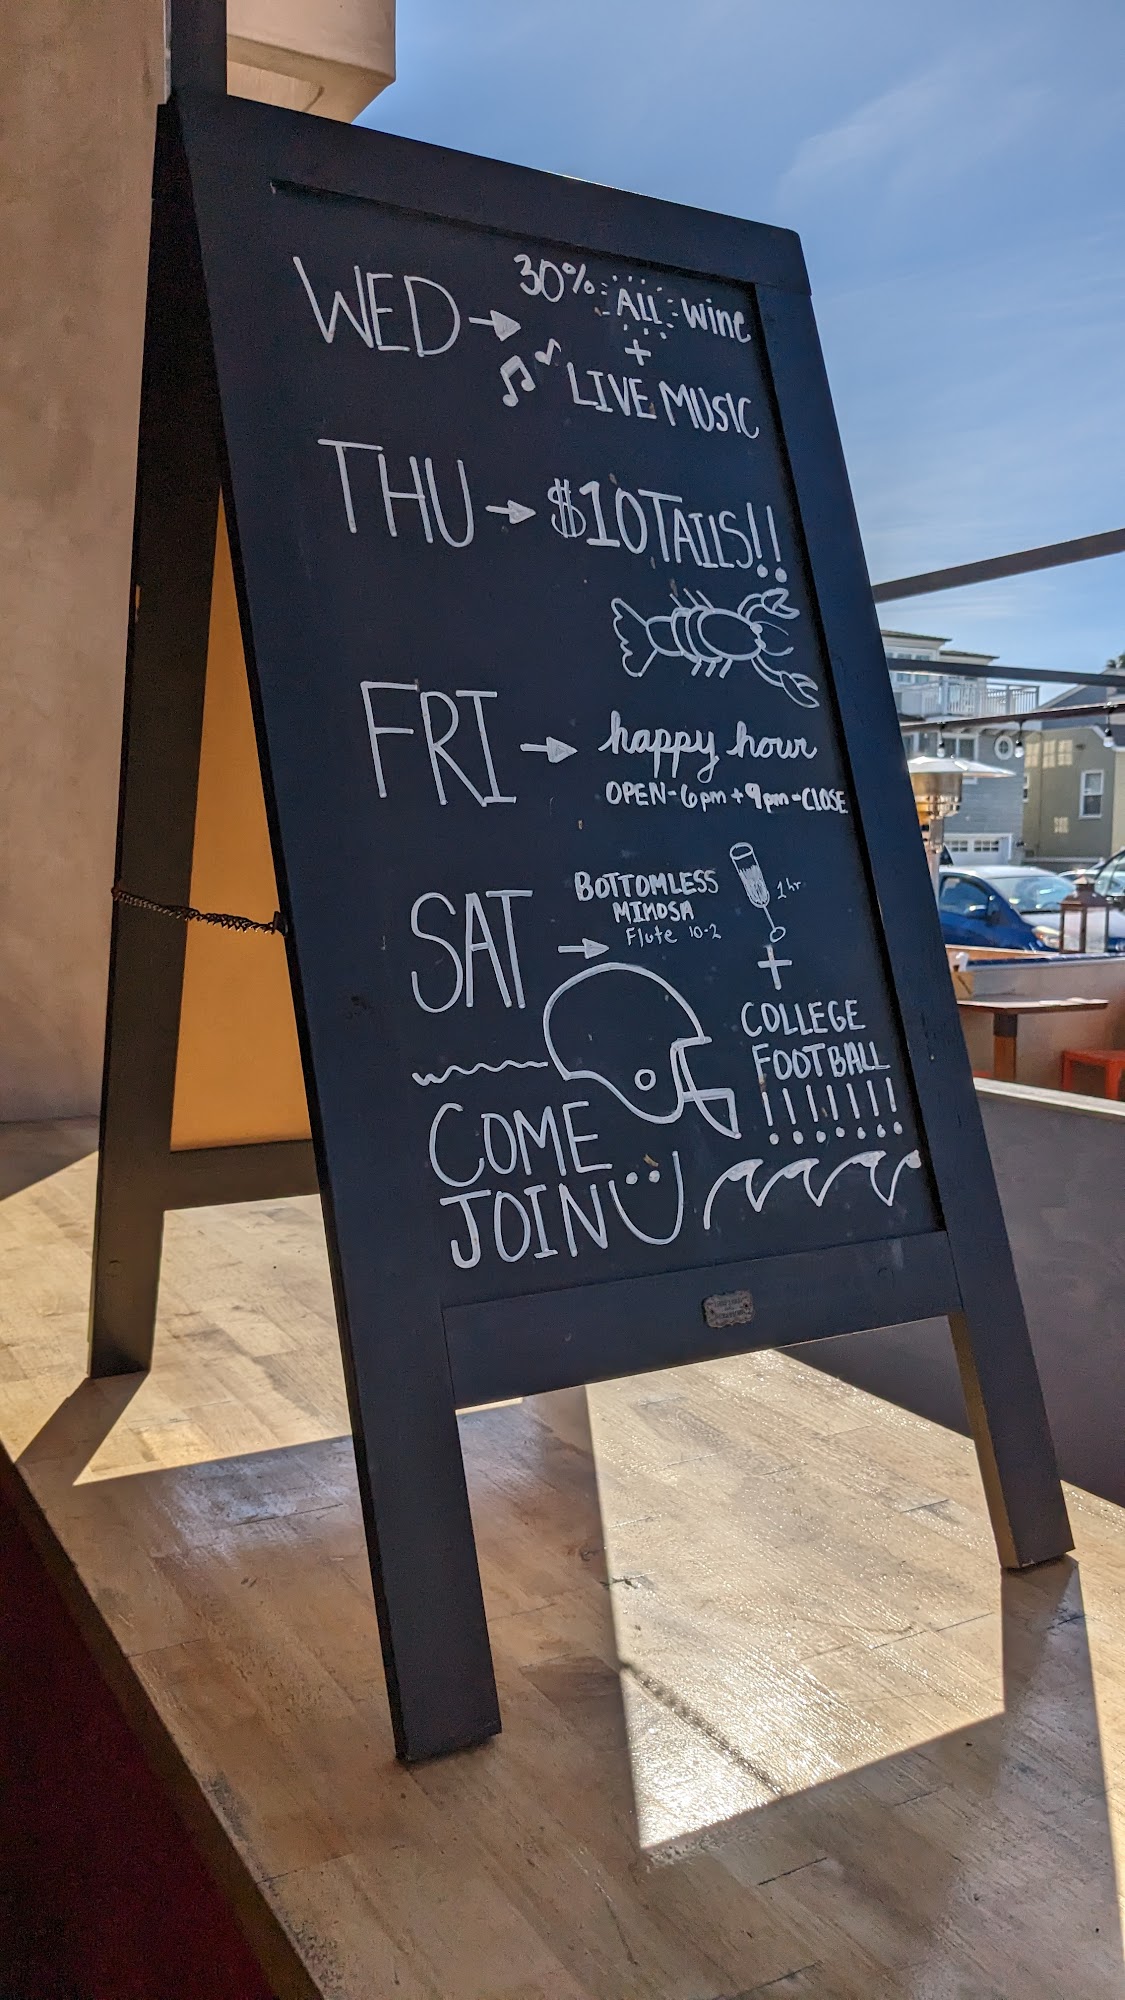 WED → 30% ALL wine
+
LIVE MUSIC
THU → $10 TAILS!!
FRI → happy hour
OPEN-6pm + 9pm-CLOSE
SAT → BOTTOMLESS
MIMOSA
Flute 10-2
1hr
+
COLLEGE
FOOTBALL
!!!!!!!
COME
JOIN U